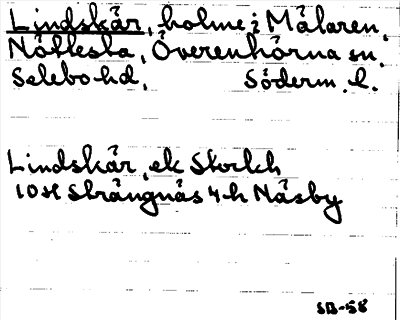 Lindskär, holme i Mälaren,
Nöttesta, Överenhörna sn,
Selebo hd, Söderm. l.
Lindskär, ek Storkh
10H Strängnäs 4h Näsby
SB-58